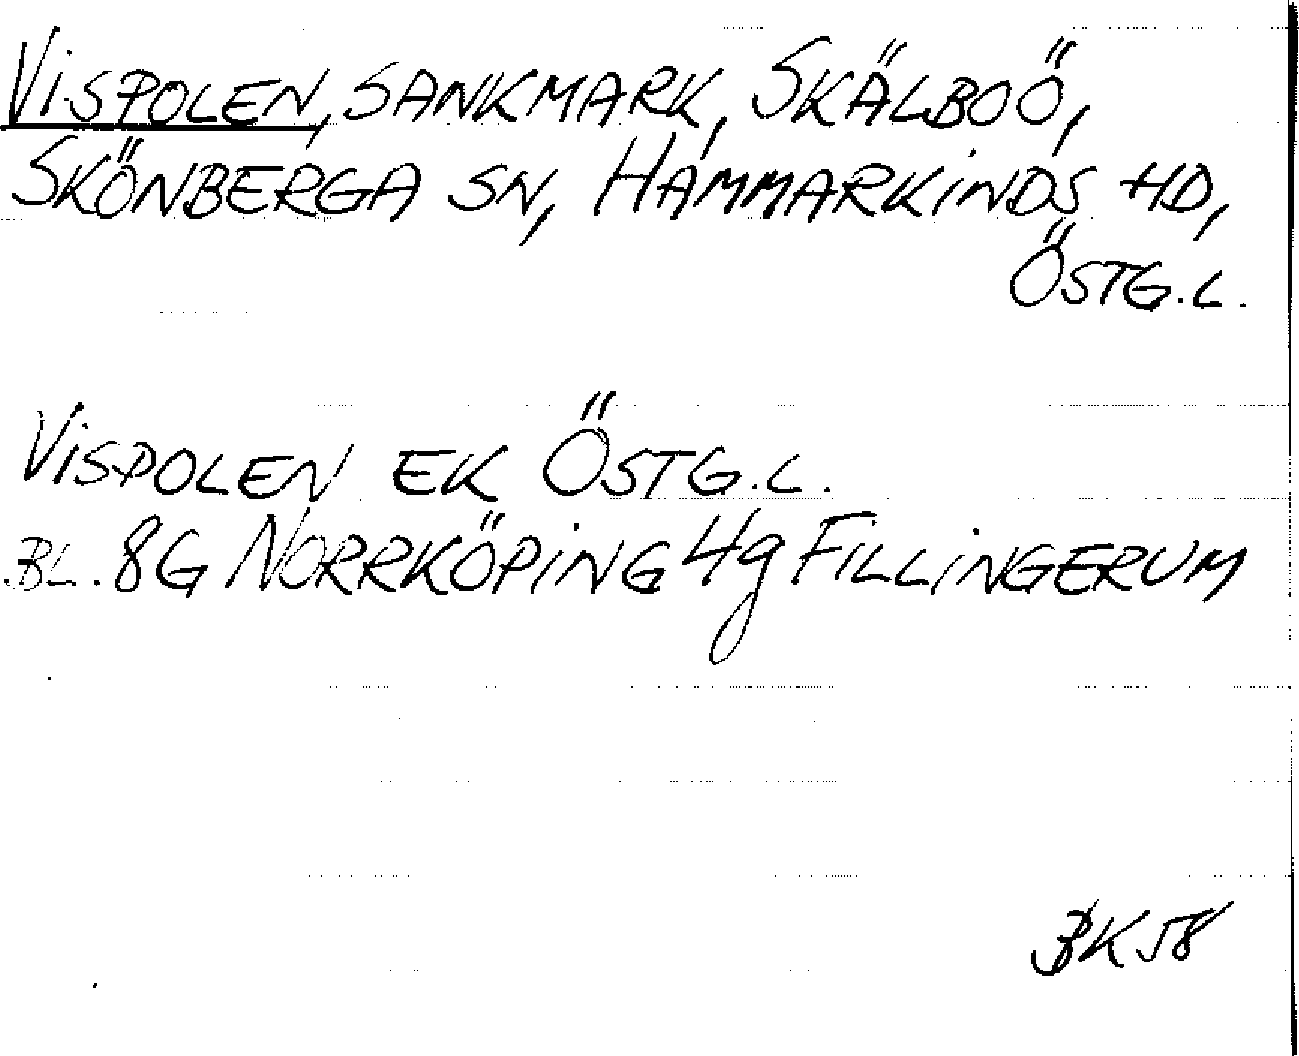 VISPOLEN, SANKMARK, SKÄLBOÖ,
SKÖNBERGA SN, HAMMARKINDS HD,
ÖSTG.L.
VISPOLEN EK ÖSTG.L.
BL. 8G NORRKÖPING 4g FILLINGERUM
BK58